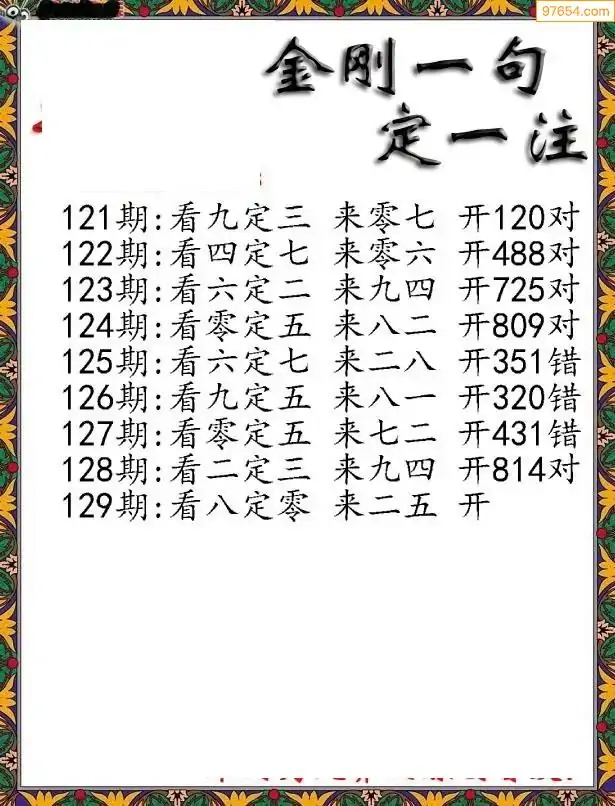 97654.com
金刚一句
定一注
121期:看九定三 来零七 开120对
122期:看四定七 来零六 开488对
123期:看六定二 来九四 开725对
124期:看零定五 来八二 开809对
125期:看六定七 来二八 开351错
126期:看九定五 来八一 开320错
127期:看零定五 来七二 开431错
128期:看二定三 来九四 开814对
129期:看八定零 来二五 开